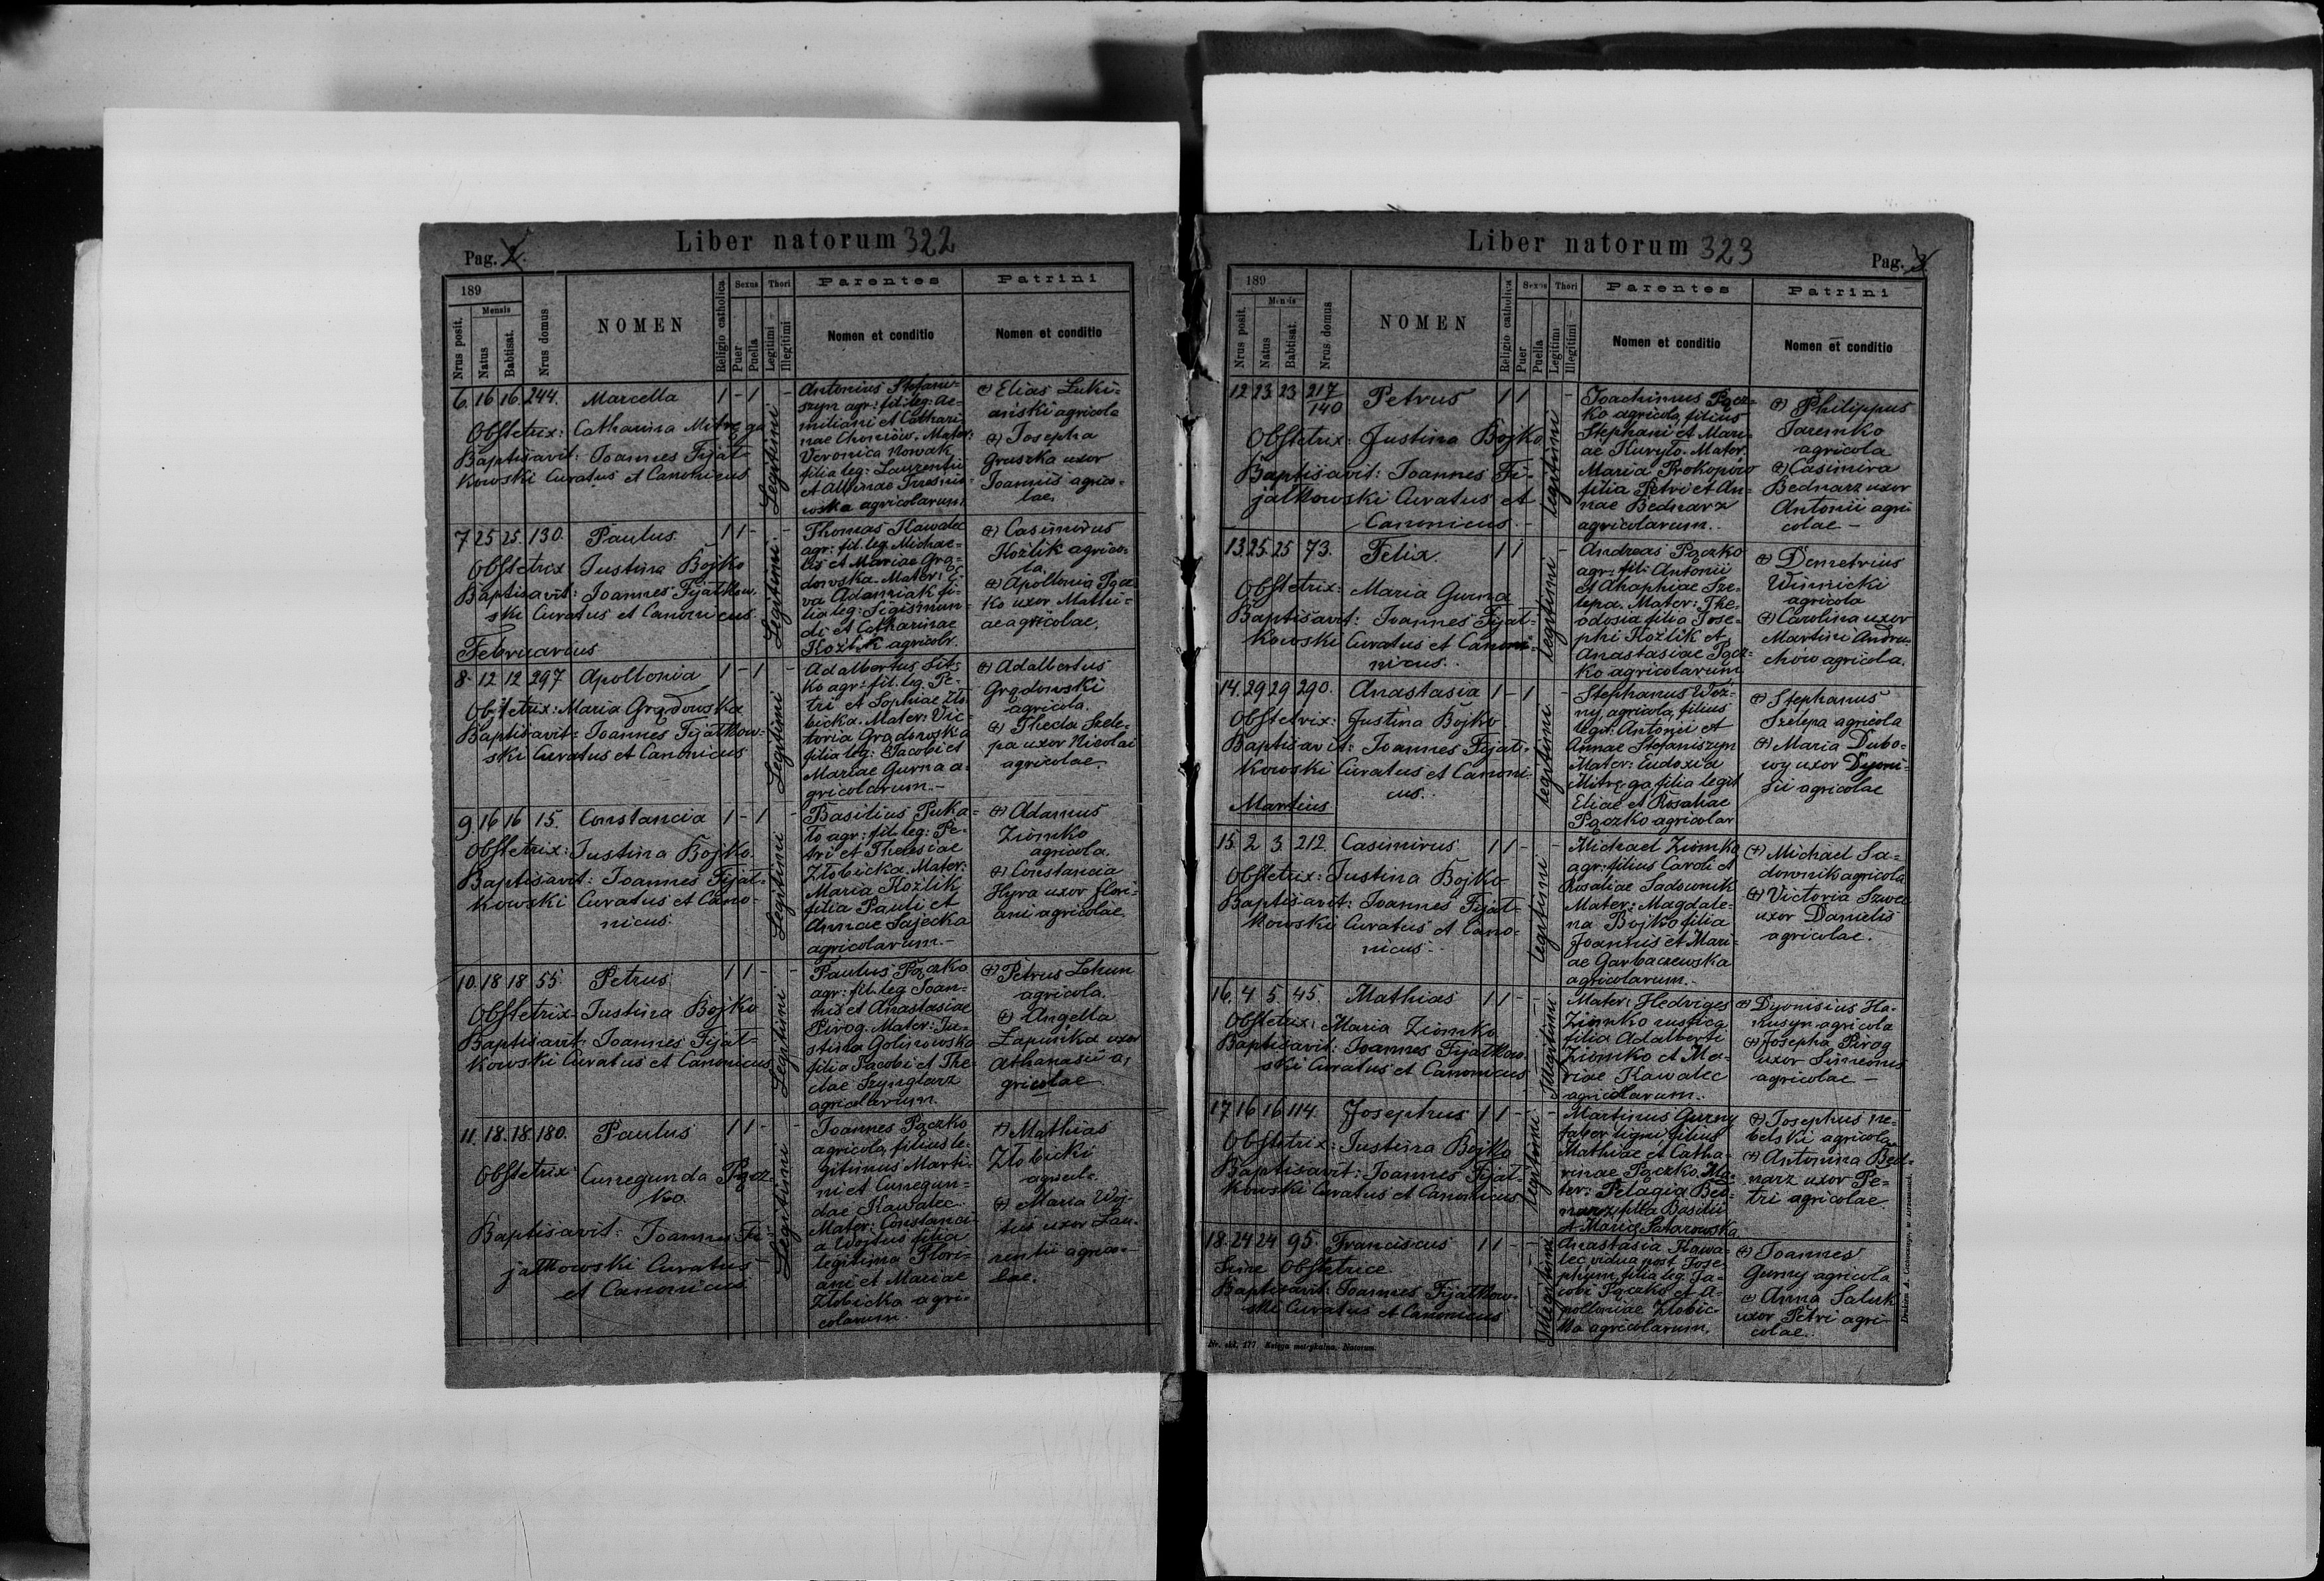 Pag. 2.
Liber natorum 322
189
Nrus posit.
Mensis
Natus
Babtisat.
Nrus domus
NOMEN
Religio catholica
Sexus
Puer
Puella
Thori
Legitimi
Illegitimi
Parentes
Nomen et conditio
Patrini
Nomen et conditio
6. 16 16 244. Marcella 1 - 1 -
Obstetrix: Catharina Mitręga
Baptisavit: Joannes Fijał-
kowski Curatus et Canonicus
Legitimi
Antonius Stefani-
szyn agr: fil: leg: Ae-
miliani et Cathari-
nae Choniów. Mater:
Veronica Nowak
filia leg: Laurentii
et Albinae
agricolarum.
(+) Elias Łuki-
ański agricola
(+) Josepha
Gruszka uxor
Joannis agrico-
lae.
7 25 25. 130. Paulus 1 1 - -
Obstetrix Justina Bojko
Baptisavit: Joannes Fijałkow-
ski Curatus et Canonicus.
Legitimi
Thomas Kawalec
agr: fil. leg. Michae-
lis et Mariae Grą-
dowska. Mater: E-
va Adamiak fi-
lia leg: Sigismun-
di et Catharinae
Koźlik agricolr.
(+) Casimirus
Koźlik agrico-
la.
(+) Apollonia Pącz-
ko uxor Mathi-
ae agricolae.
Februarius
8. 12 12 297 Apollonia 1 - 1 -
Obstetrix: Maria Grądowska
Baptisavit: Joannes Fijałkow-
ski Curatus et Canonicus
Legitimi
Adalbertus Sit-
ko agr: fil. leg. Pe-
tri et Sophiae Zło-
bicka. Mater: Vic-
toria Grądowska
filia leg: Jacobi et
Mariae Gurna a-
gricolarum.-
(+) Adalbertus
Grądowski
agricola.
(+) Thecla Szele-
pa uxor Nicolai
agricolae.
9. 16 16 15. Constancia 1 - 1 -
Obstetrix: Justina Bojko
Baptisavit: Joannes Fijał-
kowski Curatus et Cano-
nicus.
Legitimi
Basilius Puka-
ło agr: fil. leg: Pe-
tri et Theresiae
Złobicka. Mater:
Maria Koźlik
filia Pauli et
Annae Sajecka
agricolarum.-
(+) Adamus
Ziomko
agricola.
(+) Constancia
Hyra uxor Flori-
ani agricolae.
10. 18 18 55. Petrus 1 1 - -
Obstetrix Justina Bojko
Baptisavit: Joannes Fijał-
kowski Curatus et Canonicus
Legitimi
Paulus Pączko
agr: fil. leg Joan-
nis et Anastasiae
Pirog. Mater: Ju-
stina Golinowska
filia Jacobi et The-
clae Szynglarz
agricolarum.
(+) Petrus Lehun
agricola.
(+) Angella
Łapińka uxor
Athanasii a-
gricolae
11. 18. 18. 180. Paulus 1 1 - -
Obstetrix Cunegunda Pącz-
ko
Baptisavit: Joannes Fi-
jałkowski Curatus
et Canonicus
Legitimi
Joannes Pączko
agricola, filius le-
gitimus Marti-
ni et Cunegun-
dae Kawalec.
Mater: Constanci-
a Wojtus filia
legitima Flori-
ani et Mariae
Złobicka agri-
colarum.
(+) Mathias
Złobicki
agricola
(+) Maria Woj-
tus uxor Lau-
rentii agrico-
lae.
Liber natorum 323
Pag. 3.
189
Nrus posit.
Mensis
Natus
Babtisat.
Nrus domus
NOMEN
Religio catholica
Sexus
Puer
Puella
Thori
Legitimi
Illegitimi
Parentes
Nomen et conditio
Patrini
Nomen et conditio
12 23. 23 217/140 Petrus 1 1 -
Obstetrix: Justina Bojko
Baptisavit: Joannes Fi-
jałkowski Curatus et
Canonicus.-
legitimi
Joachimus Pącz-
ko agricola, filius
Stephani et Mari-
ae Kuryło. Mater.
Maria Prokopów
filia Petri et An-
nae Bednarz
agricolarum.
(+) Philippus
Jaremko
agricola
(+) Casimira
Bednarz uxor
Antonii agri
colae -
13. 25. 25 73. Felix 1 1 -
Obstetrix: Maria Gurna
Baptisavit: Joannes Fijał-
kowski Curatus et Canoni-
nicus.
legitimi
Andreas Pączko
agr: fil: Antonii
et Ahaphiae Sze-
lepa. Mater: The-
odosia filia Jose-
phi Koźlik et
Anastasiae Pącz-
ko agricolarum
(+) Demetrius
Winnicki
agricola
(+) Carolina uxor
Martini Andru-
chów agricola.
14. 29 29 290. Anastasia 1 - 1 -
Obstetrix: Justina Bojko
Baptisavit: Joannes Fijał-
kowski Curatus et Canoni-
cus.
legitimi
Stephanus Woź-
ny, agricola, filius
legit: Antonii et
Annae Stefaniszyn
Mater: Eudoxia
Mitręga filia legit
Eliae et Rosaliae
Pączko agricolar
(+) Stephanus
Szelepa agricola
(+) Maria Dubo-
wy uxor Dyoni-
sii agricolae
Martius
15. 2 3 212. Casimirus 1 1 - -
Obstetrix: Justina Bojko
Baptisavit: Joannes Fijał-
kowski Curatus et Cano-
nicus-
legitimi
Michael Ziomko
agr: filius Caroli et
Rosaliae Sadownik
Mater: Magdale-
na Bojko filia
Joannis et Mari-
ae Garbaczewska
agricolarum.-
(+) Michael Sa-
downik agricola
(+) Victoria Szwec
uxor Danielis
agricolae.
16. 4 5 45. Mathias 1 1 - -
Obstetrix: Maria Ziomko
Baptisavit: Joannes Fijałkow-
ski Curatus et Canonicus
Illegitimi
Mater: Hedviges
Ziomko rustica
filia Adalberti
Ziomko et Ma-
riae Kawalec
agricolarum.
(+) Dyonisius Ha-
nusyn agricola
(+) Josepha Pirog
uxor Simeonis
agricolae -
17. 16 16 114. Josephus 1 1 - -
Obstetrix: Justina Bojko
Baptisavit: Joannes Fijał-
kowski Curatus et Canonicus
legitimi
Martinus Gurny
faber ligni filius
Mathiae et Catha-
rinae Pączko. Ma-
ter: Pelagia Bed-
narz filia Basilii
et Maria Satarowska
(+) Josephus Ne-
belski agricola
(+) Antonina Bed-
narz uxor Pe-
tri agricolae.
18. 24 24 95. Franciscus 1 1 - -
Sine obstetrice
Baptisavit: Joannes Fijałkow-
ski Curatus et Canonicus
Illegitimi
Anastasia Kawa-
lec vidua post Jose-
phum, filia leg. Ja-
cobi Pączko et A-
polloniae Złobic-
ka agricolarum.
(+) Joannes
Gurny agricola
(+) Anna Saluk
uxor Petri agri-
colae.
Nr. skł. 177 Księga metrykalna. Natorum.